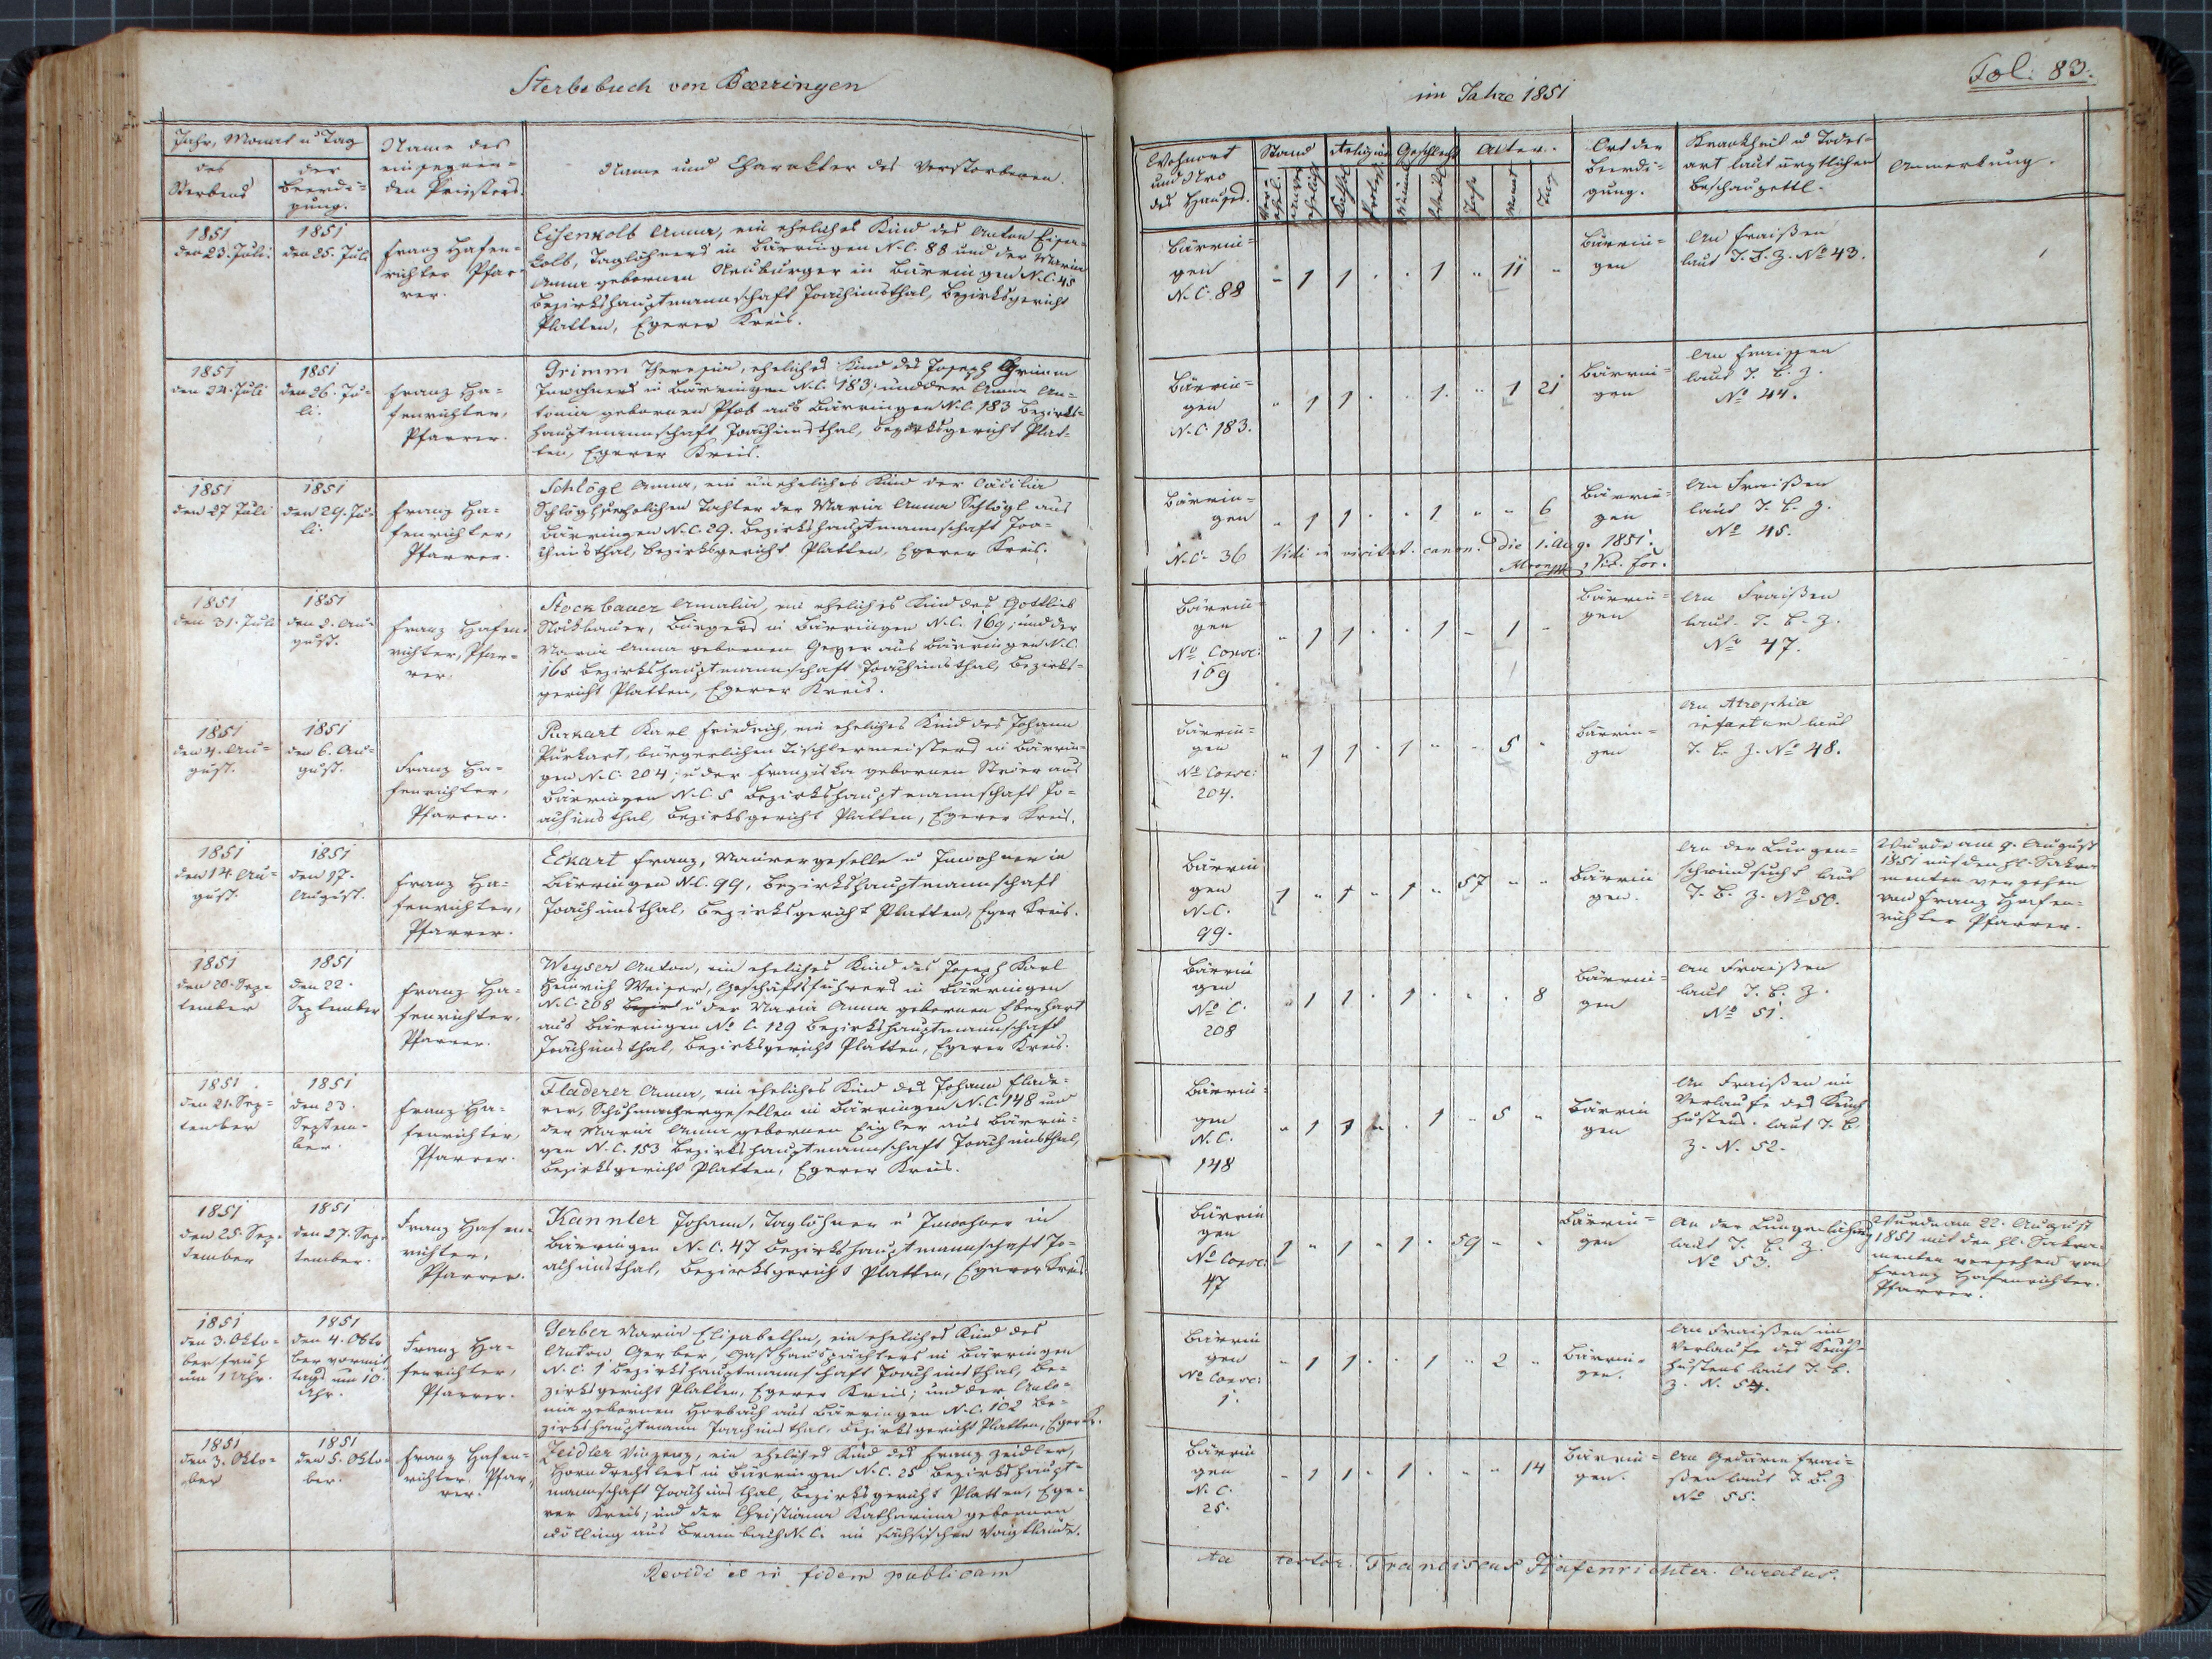 Sterbebuch von Baeringen
im Jahre 1851
Fol: 83.
Jahr, Monat u Tag
des
Sterbens
der
Beerdi=
gung.
Name des
einsegnen=
den Priesters.
Name und Charakter des Verstorbenen.
Wohnort
und Nro
des Hauses.
Stand
Religion
Geschlecht
Alter.
Jahr
Monat
Tag
Ort der
Beerdi=
gung.
Krankheit u Todes=
art laut ärztlichen
Beschauzettl.
Anmerkung.
1851
den 23. Juli
1851
den 25. Juli
Franz Hafen=
richter Pfar=
rer.
Eisenkolb Anna, ein eheliches Kind des Anton Eisen=
kolb, Taglöhners in Bärringen N.C. 88 und der Maria
Anna gebornen Neuburger in Bärringen N.C. 45
Bezirkshauptmannschaft Joachimsthal, Bezirksgericht
Platten, Egerer Kreis.
Bärrin=
gen
N.C. 88
" 1 1 . . 1 " 11 "
Bärrin=
gen
An Fraißen
laut T. B. Z. No 43.
1851
den 24. Juli
1851
den 26. Ju=
li.
Franz Ha=
fenrichter,
Pfarrer.
Grimm Theresia, eheliches Kind des Joseph Grimm
Inwohners in Bärringen N.C. 183; und der Anna An=
tonia gebornen aus Bärringen N.C. 183 Bezirks=
hauptmannschaft Joachimsthal, Bezirksgericht Plat=
ten, Egerer Kreis.
Bärrin=
gen
N.C. 183.
" 1 1 . . 1. " 1 21
Bärrin=
gen
An Fraissen
laut T. B. Z.
No 44.
1851
den 27 Juli
1851
den 29. Ju=
li.
Franz Ha=
fenrichter,
Pfarrer.
Schlögl Anna, ein uneheliches Kind der Cäcilia
Schlögl, ehelichen Tochter der Maria Anna Schlögl aus
Bärringen N.C. 29. Bezirkshauptmannschaft Joa=
chimsthal, Bezirksgericht Platten, Egerer Kreis.
Bärrin=
gen
N.C. 36
" 1 1 . . 1 " " 6
Bärrin=
gen
An Fraißen
laut T. B. Z.
No 45.
Vidi in visitat. canon. die 1. Aug. 1851.
Vic. for.
1851
den 31. Juli
1851
den 2. Au=
gust.
Franz Hafen=
richter, Pfar=
rer.
Stockbauer Amalia, ein eheliches Kind des Gottlieb
Stockbauer, Bürgers in Bärringen N.C. 169; und der
Maria Anna gebornen Geyer aus Bärringen N.C.
165 Bezirkshauptmannschaft Joachimsthal, Bezirks=
gericht Platten, Egerer Kreis.
Bärrin=
gen
No Consc:
169
" 1 1 . . 1 " 1 "
Bärrin=
gen
An Fraißen
laut T. B. Z.
No 47.
1851
den 4. Au=
gust.
1851
den 6. Au=
gust.
Franz Ha=
fenrichter,
Pfarrer.
Purkart Karl Friedrich, ein eheliches Kind des Johann
Purkart, bürgerlichen Tischlermeisters in Bärrin=
gen N.C. 204; u der Franziska gebornen aus
Bärringen N.C. 5 Bezirkshauptmannschaft Jo=
achimsthal, Bezirksgericht Platten, Egerer Kreis.
Bärrin=
gen
No Consc:
204.
" 1 1 . 1 " " 5 "
Bärrin=
gen
An Atrophia
infantum laut
T. B. Z. No 48.
1851
den 14. Au=
gust.
1851
den 17.
August.
Franz Ha=
fenrichter,
Pfarrer.
Eckart Franz, Maurergeselle u Inwohner in
Bärringen N.C. 99, Bezirkshauptmannschaft
Joachimsthal, Bezirksgericht Platten, Eger Kreis.
Bärrin
gen
N.C.
99.
1 " 1 " 1 " 57 " "
Bärrin
gen.
An der Lungen=
schwindsucht laut
T. B. Z. No 50.
Wurde am 9. August
1851 mit den hl. Sakra
menten versehen
von Franz Hafen=
richter Pfarrer.
1851
den 20. Sep=
tember
1851
den 22.
September
Franz Ha=
fenrichter,
Pfarrer.
Weyser Anton, ein eheliches Kind des Joseph Karl
Heinrich Weiser, Geschäftsführers in Bärringen
N.C. 208 u der Maria Anna gebornen Eberhart
aus Bärringen No C. 129 Bezirkshauptmannschaft
Joachimsthal, Bezirksgericht Platten, Egerer Kreis.
Bärrin
gen
No C.
208
" 1 1 . 1 . " . 8
Bärrin=
gen
An Fraißen
laut T. B. Z.
No 51.
1851
den 21. Sep=
tember
1851
den 23.
Septem=
ber.
Franz Ha=
fenrichter,
Pfarrer.
Fladerer Anna, ein eheliches Kind des Johann Flade=
rer, Schuhmachergesellen in Bärringen N.C. 148 und
der Maria Anna gebornen Eigler aus Bärrin=
gen N.C. 153 Bezirkshauptmannschaft Joachimsthal,
Bezirksgericht Platten, Egerer Kreis.
Bärrin=
gen
N.C.
148
" 1 1 " . 1 " 5 "
Bärrin
gen
An Fraißen im
Verlaufe des Keuch
hustens. laut T. B.
Z. N. 52.
1851
den 25. Sep=
tember
1851
den 27. Sep=
tember.
Franz Hafen=
richter,
Pfarrer.
Kannler Johann, Taglöhner u Inwohner in
Bärringen N.C. 47 Bezirkshauptmannschaft Jo=
achimsthal, Bezirksgericht Platten, Egerer Kreis
Bärrin
gen
No Consc:
47
1 " 1 " 1 . 59 " "
Bärrin=
gen
An der Lungenlähmung
laut T. B. Z.
No 53.
Wurde am 22. August
1851 mit den hl. Sakra=
menten versehen von
Franz Hafenrichter.
Pfarrer.
1851
den 3. Okto=
ber früh
um 1 Uhr.
1851
den 4. Okto
ber vormit
tags um 10
Uhr.
Franz Ha=
fenrichter,
Pfarrer.
Gerber Maria Elisabetha, ein eheliches Kind des
Anton Gerber, Gasthauspächters in Bärringen
N.C. 1 Bezirkshauptmannschaft Joachimsthal, Be=
zirksgericht Platten, Egerer Kreis; und der Anto=
nia gebornen Horbach aus Bärringen N.C. 102 Be=
zirkshauptmann Joachimsthal, Bezirksgericht Platten, Eger Kr.
Bärrin
gen
No Consc:
1.
" 1 1 . . 1 " 2 "
Bärrin=
gen.
An Fraißen im
Verlaufe des Keuch=
hustens laut T. B.
Z. N. 54.
1851
den 3. Okto=
ber
1851
den 5. Okto=
ber.
Franz Hafen=
richter. Pfar=
rer.
Zeidler Vinzenz, ein eheliches Kind des Franz Zeidler,
Horndrechslers in Bärringen N.C. 25 Bezirkshaupt=
mannschaft Joachimsthal, Bezirksgericht Platten, Ege=
rer Kreis; und der Christiana Katharina gebornen
Wölling aus Brambach N.C. im sächsischen Voigtlande.
Bärrin
gen
N.C.
25.
" 1 1 . 1 . " " 14
Bärrin=
gen.
An Gedärm Frai=
ßen laut T. B. Z
No 55.
Revidi et in fidem publicam
testor. Franciscus Hafenrichter. Curatus.